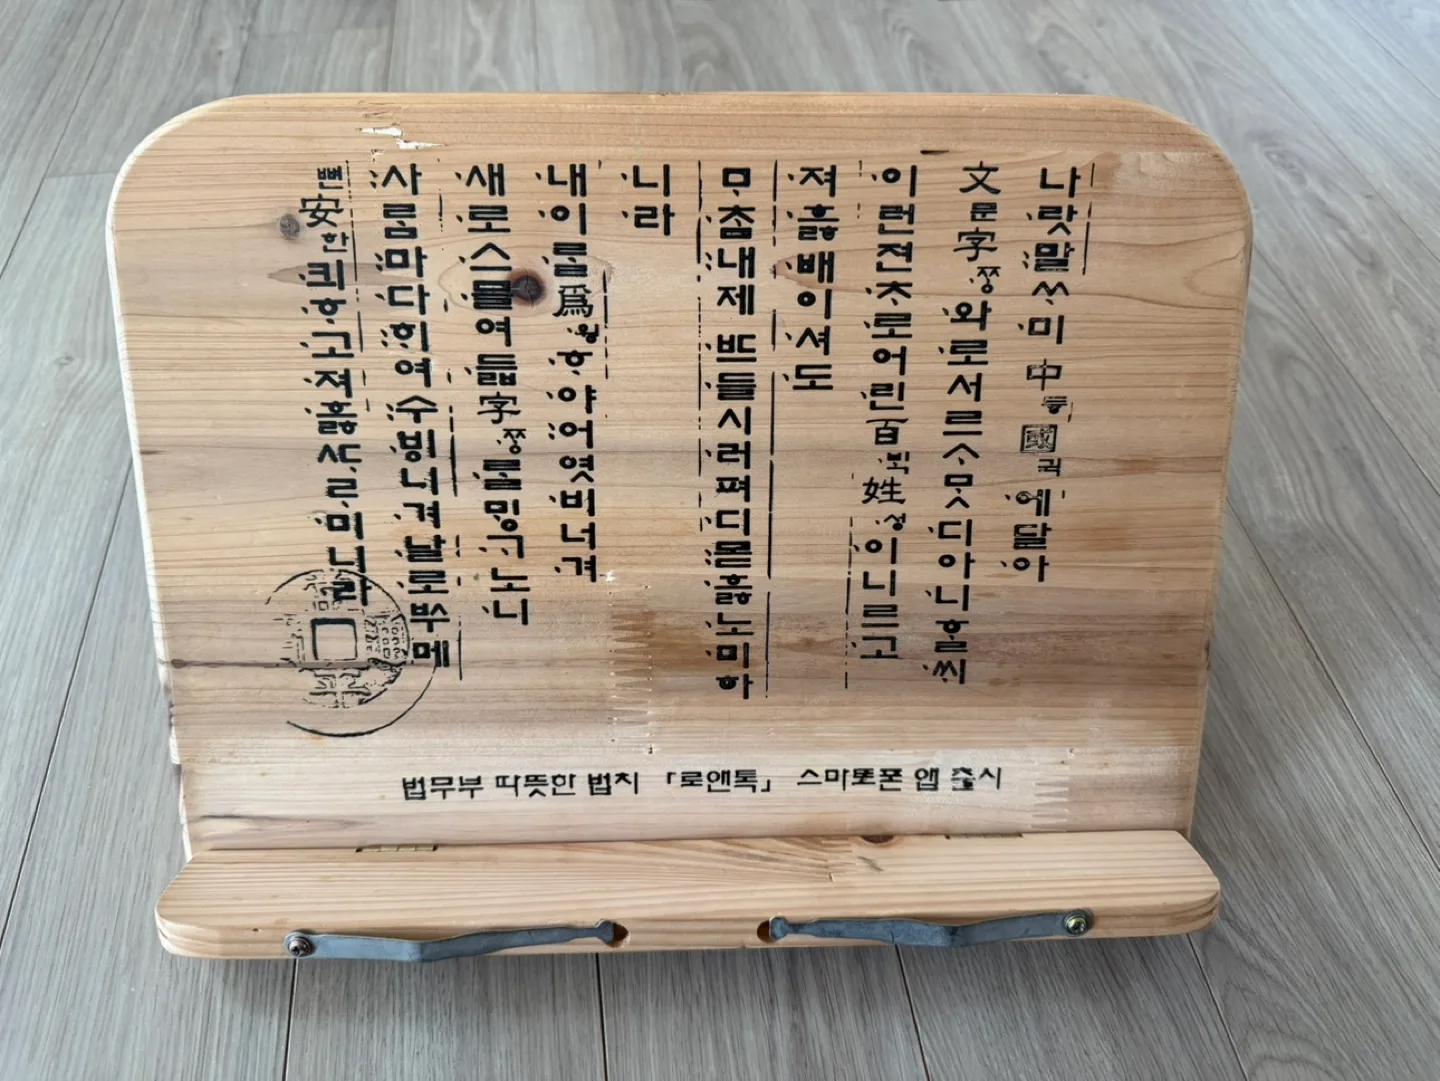 나랏〮말〯ᄊᆞ미〮中듕國귁에〮달아〮
文문字ᄍᆞᆼ〮와〮로서르ᄉᆞᄆᆞᆺ디〮아니〮ᄒᆞᆯᄊᆡ〮
이〮런젼ᄎᆞ〮로〮어린〮百ᄇᆡᆨ〮姓셔ᇰ〮이〮니르고〮
져〮호ᇙ〮배〮이셔〮도〮
ᄆᆞᄎᆞᆷ〮내〯제ᄠᅳ〮들〮시러〮펴디〮몯〯호ᇙ노〮미〮하〮
니〮라〮
내〮이〮ᄅᆞᆯ〮爲윙〮ᄒᆞ〮야〮어〯엿비〮너겨〮
새〮로〮스〮믈〮여듧〮字ᄍᆞᆼ〮ᄅᆞᆯ〮ᄆᆡᇰᄀᆞ〮노니〮
사〯ᄅᆞᆷ마〯다〮ᄒᆡ〯ᅇᅧ〮수〯ᄫᅵ〮니겨〮날〮로〮ᄡᅮ〮메〮
뼌安한킈〮ᄒᆞ고〮져〮호ᇙᄯᆞᄅᆞ미〮니라〮
법무부 따뜻한 법치 「로앤톡」 스마트폰 앱 출시